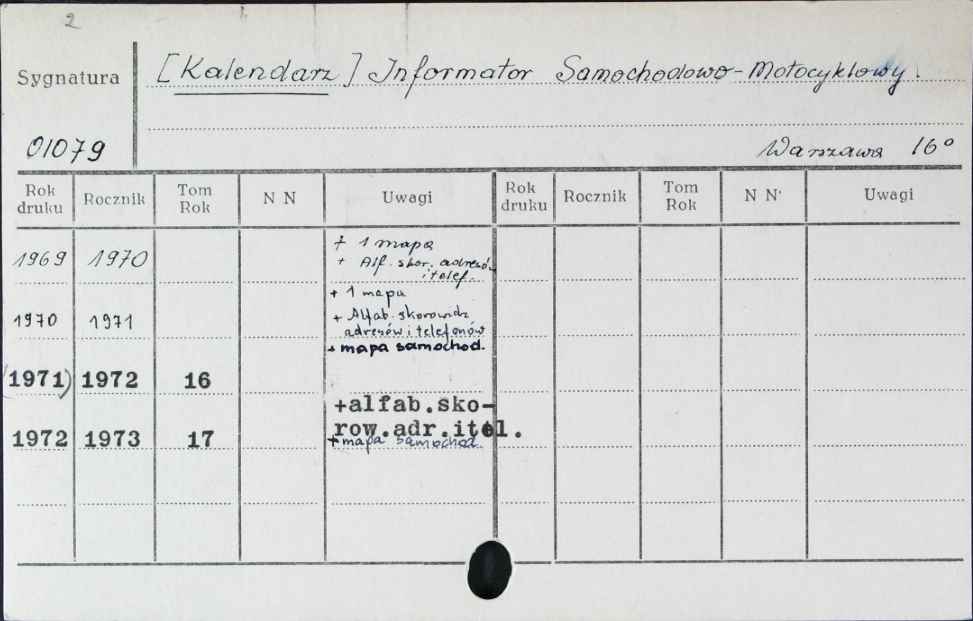 2
Sygnatura
[Kalendarz] Informator Samochodowo-Motocyklowy.
01079
Warszawa 16°
Rok druku Rocznik Tom Rok N N Uwagi Rok druku Rocznik Tom Rok N N Uwagi
1969 1970 + 1 mapa
+ Alf. skor. adresów
i telef.
+ 1 mapa
1970 1971 + Alfab. skorowidz
adresów i telefonów
+ mapa samochod.
(1971) 1972 16
+alfab.sko-
row.adr.itel.
1972 1973 17 + mapa samochod.